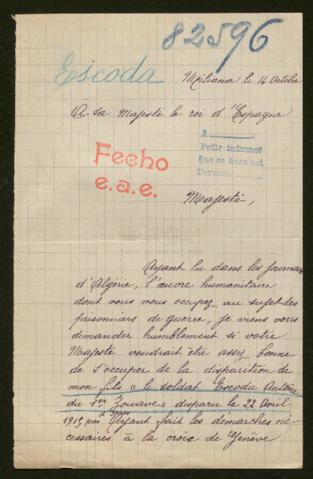 82596
Escoda
Miliana le 14 Octobre
A Sa Majesté le roi d'Espagne
Fecho
e.a.e.
A
Pedir informes
que se hace del
Devolver
Majesté,
Ayant lu dans les journaux
d'Algérie, l'œuvre humanitaire
dont vous vous occupez au sujet des
prisonniers de guerre, je viens vous
demander humblement si votre
Majesté voudrait être assez bonne
de s'occuper de la disparition de
mon fils « le soldat Escoda Antoine
du 1er Zouave » disparu le 22 Avril
1915 Ayant fait les démarches né-
cessaires à la croix de Genève